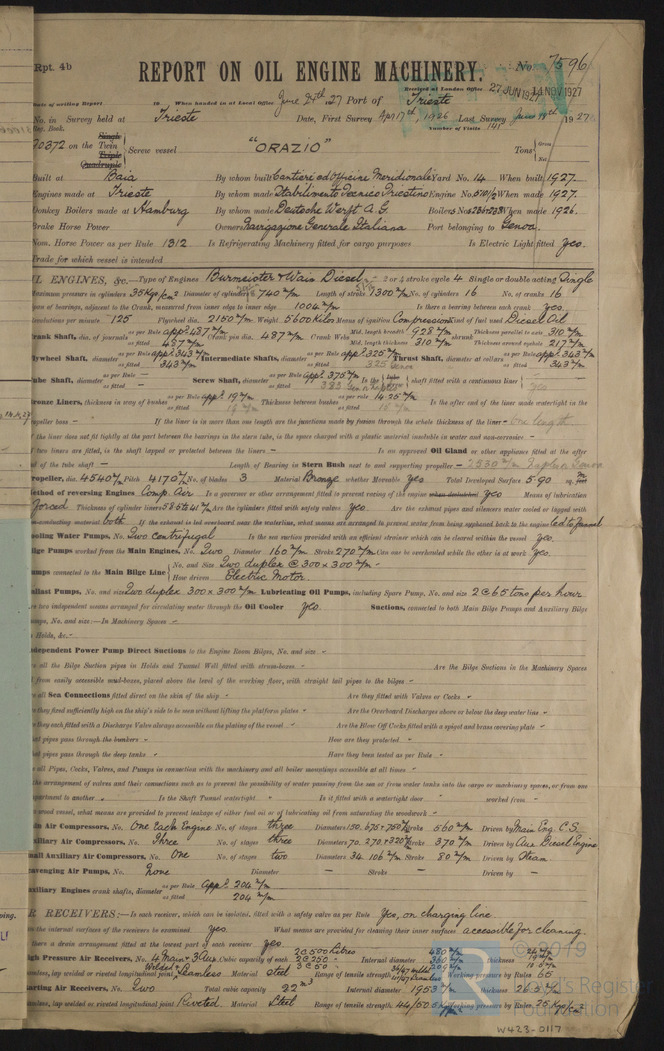 Rpt. 4b
REPORT ON OIL ENGINE MACHINERY.
No. 7596
Received at London Office 27 JUN 1927 14 NOV 1927
Date of writing Report 19 When handed in at Local Office June 24th 27 Port of Trieste
No. in Survey held at Trieste Date, First Survey April 17th, 1926 Last Survey June 1927
Reg. Book. Number of Visits 141
Single
on the Twin Screw vessel "ORAZIO" Tons Gross
Triple
Quadruple Net
Built at Baia By whom built Cantieri ed Officine Meridionale Yard No. 14 When built 1927.
Engines made at Trieste By whom made Stabilimento Tecnico Triestino Engine No. When made 1927.
Donkey Boilers made at Hamburg By whom made Deutsche Werft A.G. Boilers No. When made 1926.
Brake Horse Power Owners Navigazione Generale Italiana Port belonging to Genoa.
Nom. Horse Power as per Rule 1312 Is Refrigerating Machinery fitted for cargo purposes Is Electric Light fitted yes.
Trade for which vessel is intended
OIL ENGINES, &c.—Type of Engines Burmeister & Wain Diesel 2 or 4 stroke cycle 4 Single or double acting Single
Maximum pressure in cylinders 35 Kgs/cm² Diameter of cylinders 740 m/m Length of stroke 1300 m/m No. of cylinders 16 No. of cranks 16
Span of bearings, adjacent to the Crank, measured from inner edge to inner edge 1004 m/m Is there a bearing between each crank yes
Revolutions per minute 125 Flywheel dia. 2150 m/m Weight 5600 Kilos Means of ignition Compression Kind of fuel used Diesel Oil
Crank Shaft, dia. of journals as per Rule app. 487 m/m as fitted 487 m/m Crank pin dia. 487 m/m Crank Webs Mid. length breadth 928 m/m Mid. length thickness 310 m/m shrunk Thickness parallel to axis 310 m/m Thickness around eyehole 217 m/m
Flywheel Shaft, diameter as per Rule app. 343 m/m as fitted 343 m/m Intermediate Shafts, diameter as per Rule app. 325 m/m as fitted 325 Thrust Shaft, diameter at collars as per Rule app. 343 m/m as fitted 343 m/m
Tube Shaft, diameter as per Rule — as fitted — Screw Shaft, diameter as per Rule app. 375 m/m as fitted 385 Is the shaft fitted with a continuous liner yes
Bronze Liners, thickness in way of bushes as per Rule app. 19 m/m as fitted 19 m/m Thickness between bushes as per rule 14.25 m/m as fitted 15 m/m Is the after end of the liner made watertight in the
propeller boss — If the liner is in more than one length are the junctions made by fusion through the whole thickness of the liner - one length.
If the liner does not fit tightly at the part between the bearings in the stern tube, is the space charged with a plastic material insoluble in water and non-corrosive -
If two liners are fitted, is the shaft lapped or protected between the liners - Is an approved Oil Gland or other appliance fitted at the after
end of the tube shaft — Length of Bearing in Stern Bush next to and supporting propeller - 1530 m/m
Propeller, dia. 4540 m/m Pitch 4170 m/m No. of blades 3 Material Bronze whether Moveable yes Total Developed Surface 5.90 sq. m
Method of reversing Engines Comp. Air Is a governor or other arrangement fitted to prevent racing of the engine when declutched yes Means of lubrication
Forced Thickness of cylinder liners 58.5 to 41 m/m Are the cylinders fitted with safety valves yes Are the exhaust pipes and silencers water cooled or lagged with
non-conducting material both If the exhaust is led overboard near the waterline, what means are arranged to prevent water from being syphoned back to the engine led to funnel
Cooling Water Pumps, No. Two centrifugal Is the sea suction provided with an efficient strainer which can be cleared within the vessel yes.
Bilge Pumps worked from the Main Engines, No. Two Diameter 160 m/m Stroke 270 m/m Can one be overhauled while the other is at work yes.
Pumps connected to the Main Bilge Line No. and Size Two duplex @ 300 x 300 m/m -
How driven Electric Motor.
Ballast Pumps, No. and size Two duplex 300 x 300 m/m Lubricating Oil Pumps, including Spare Pump, No. and size 2 @ 65 tons per hour
Are two independent means arranged for circulating water through the Oil Cooler yes. Suctions, connected to both Main Bilge Pumps and Auxiliary Bilge
Pumps, No. and size:—In Machinery Spaces -
In Holds, &c. -
Independent Power Pump Direct Suctions to the Engine Room Bilges, No. and size -
Are all the Bilge Suction pipes in Holds and Tunnel Well fitted with strum-boxes - Are the Bilge Suctions in the Machinery Spaces
led from easily accessible mud-boxes, placed above the level of the working floor, with straight tail pipes to the bilges -
Are all Sea Connections fitted direct on the skin of the ship - Are they fitted with Valves or Cocks -
Are they fixed sufficiently high on the ship's side to be seen without lifting the platform plates - Are the Overboard Discharges above or below the deep water line -
Are they each fitted with a Discharge Valve always accessible on the plating of the vessel - Are the Blow Off Cocks fitted with a spigot and brass covering plate -
What pipes pass through the bunkers - How are they protected -
What pipes pass through the deep tanks - Have they been tested as per Rule -
Are all Pipes, Cocks, Valves, and Pumps in connection with the machinery and all boiler mountings accessible at all times -
Is the arrangement of valves and their connections such as to prevent the possibility of water passing from the sea or from water tanks into the cargo or machinery spaces, or from one
compartment to another - Is the Shaft Tunnel watertight - Is it fitted with a watertight door - worked from -
If a wood vessel, what means are provided to prevent leakage of either fuel oil or of lubricating oil from saturating the woodwork -
Main Air Compressors, No. One Each Engine No. of stages three Diameters 150. 675 & 750 m/m Stroke 560 m/m Driven by Main Eng. C.S.
Auxiliary Air Compressors, No. Three No. of stages three Diameters 70. 270 & 320 m/m Stroke 370 m/m Driven by Aux Diesel Engine
Small Auxiliary Air Compressors, No. One No. of stages two Diameters 34. 106 m/m Stroke 80 m/m Driven by Steam.
Scavenging Air Pumps, No. none Diameter — Stroke — Driven by —
Auxiliary Engines crank shafts, diameter as per Rule App. 204 m/m
as fitted 204 m/m
AIR RECEIVERS:—Is each receiver, which can be isolated, fitted with a safety valve as per Rule Yes, on charging line.
Can the internal surfaces of the receivers be examined Yes. What means are provided for cleaning their inner surfaces accessible for cleaning.
Is there a drain arrangement fitted at the lowest part of each receiver yes
High Pressure Air Receivers, No. 4 Main & 3 Aux. Cubic capacity of each 2 @ 500 Litres 2 @ 250 - 3 @ 50 Internal diameter 480 m/m 360 m/m thickness
Seamless, lap welded or riveted longitudinal joint Welded & Seamless Material Steel Range of tensile strength Working pressure by Rules 65
Starting Air Receivers, No. Two Total cubic capacity 22 m³ Internal diameter 1953 m/m thickness
Seamless, lap welded or riveted longitudinal joint Riveted. Material Steel Range of tensile strength 44/50.5 Working pressure by Rules 25 Kgs/cm²
© 2019
Lloyd's Register
Foundation
W423-0117